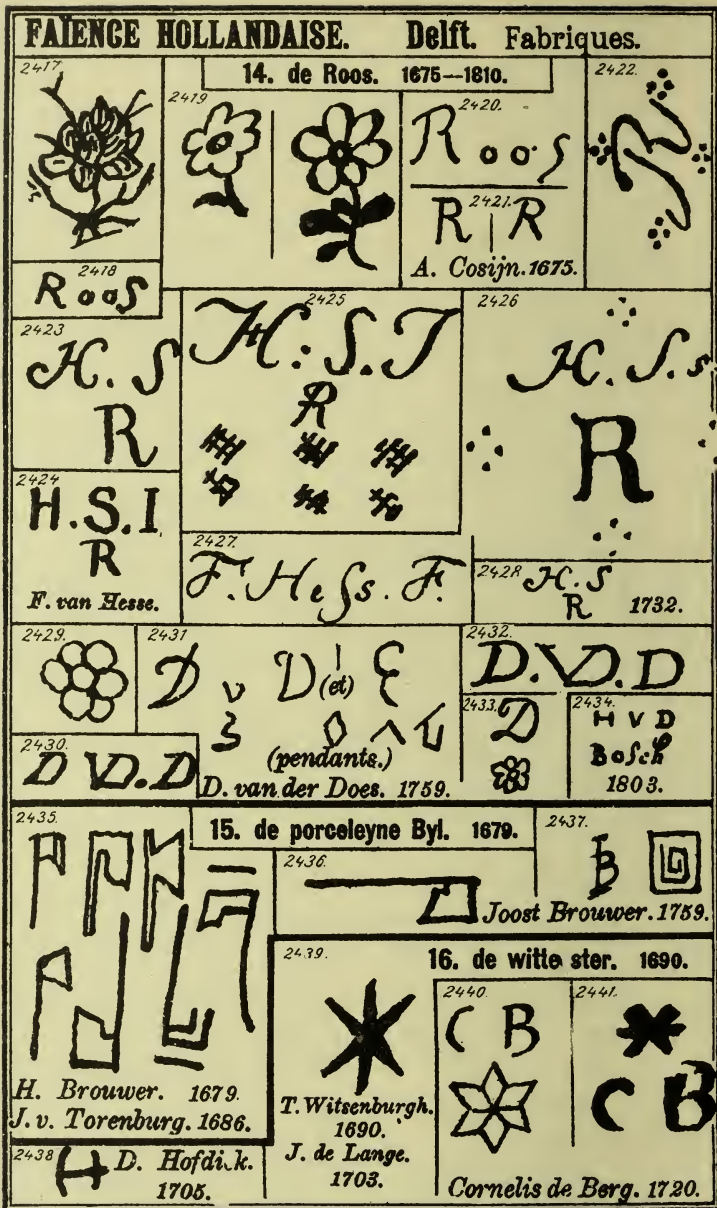 FAÏENCE HOLLANDAISE. Delft. Fabriques.
14. de Roos. 1675—1810.
2417
2418
Roos
2419
2420.
Roos
2421.
R R
A. Cosijn. 1675.
2422.
R
2423
H. S
R
2424
H.S.I
R
F. van Hesse.
2425
H:S.I
R
2426
H. S. s
R
2427.
F. Hess. F.
2428
H. S
R 1732.
2429.
2430.
D VD.D
2431
D v D (et)
(pendants.)
D. van der Does. 1759.
2432.
D.VD.D
2433.
D
2434.
H V D
Bosch
1803.
15. de porceleyne Byl. 1679.
2435.
H. Brouwer. 1679.
J. v. Torenburg. 1686.
2436.
2437.
B
Joost Brouwer. 1759.
2438
H D. Hofdick.
1705.
16. de witte ster. 1690.
2439.
T. Witsenburgh.
1690.
J. de Lange.
1703.
2440.
C B
2441.
C B
Cornelis de Berg. 1720.